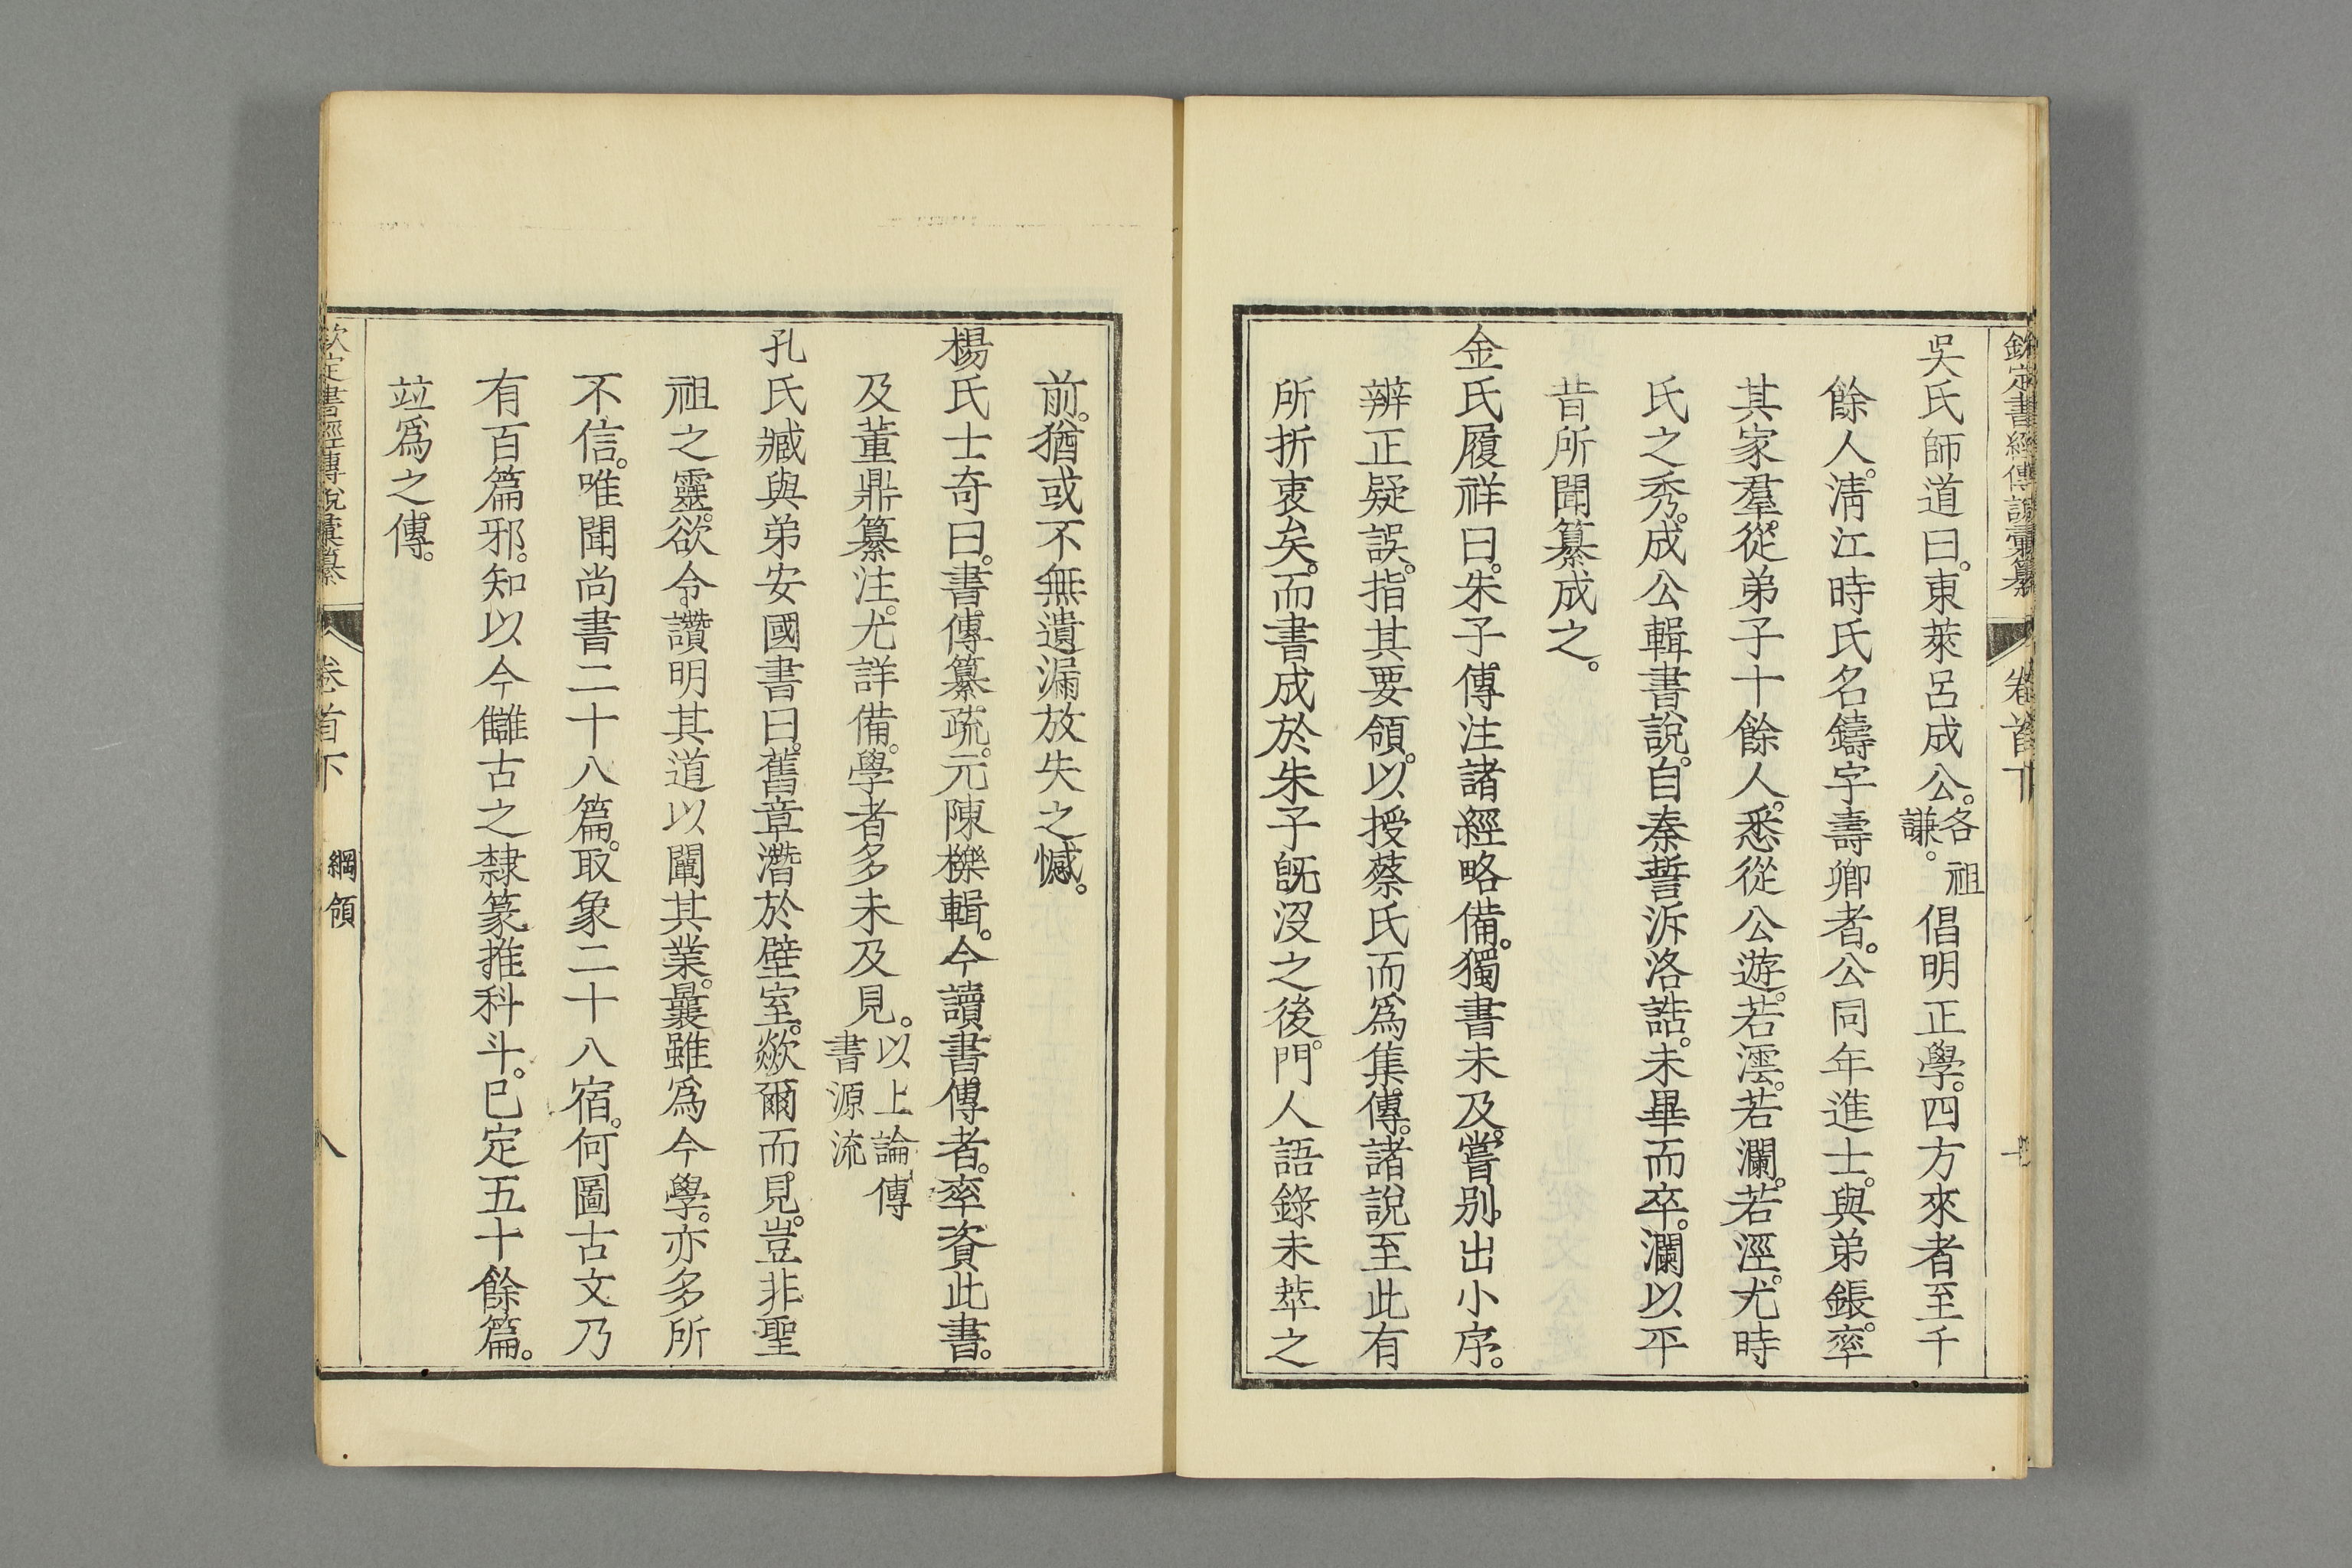 欽定書經傳說彙纂 卷首下 七
吳氏師道曰。東萊呂成公。名祖謙。倡明正學。四方來者至千
餘人。淸江時氏名鑄字壽卿者。公同年進士。與弟鋹。率
其家羣從弟子十餘人。悉從公遊。若澐。若瀾。若涇。尤時
氏之秀。成公輯書說。自秦誓泝洛誥。未畢而卒。瀾以平
昔所聞纂成之。
金氏履祥曰。朱子傳注諸經略備。獨書未及。嘗別出小序。
辨正疑誤。指其要領。以授蔡氏而爲集傳。諸說至此有
所折衷矣。而書成於朱子旣沒之後。門人語錄未萃之
前。猶或不無遺漏放失之憾。
楊氏士奇曰。書傳纂疏。元陳櫟輯。今讀書傳者。率資此書。
及董鼎纂注。尤詳備。學者多未及見。以上論傳書源流
孔氏臧與弟安國書曰。舊章潛於壁室。歘爾而見。豈非聖
祖之靈。欲令讚明其道以闡其業。曩雖爲今學。亦多所
不信。唯聞尚書二十八篇。取象二十八宿。何圖古文乃
有百篇邪。知以今讎古之隸篆推科斗。已定五十餘篇。
竝爲之傳。
欽定書經傳說彙纂 卷首下 綱領 八